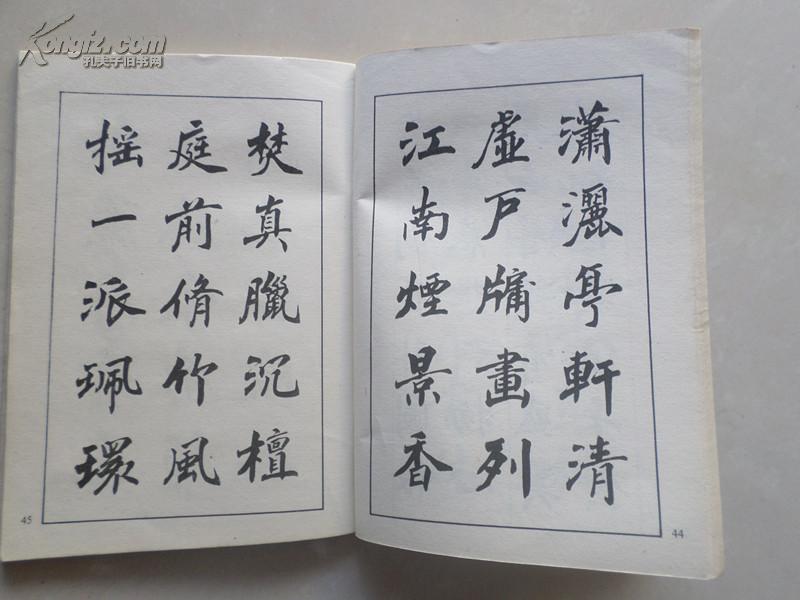 瀟灑亭軒清
虛戶牖畫列
江南煙景香
44
焚真臘沉檀
庭前脩竹風
搖一派珮環
45
Kongfz.com
孔夫子旧书网